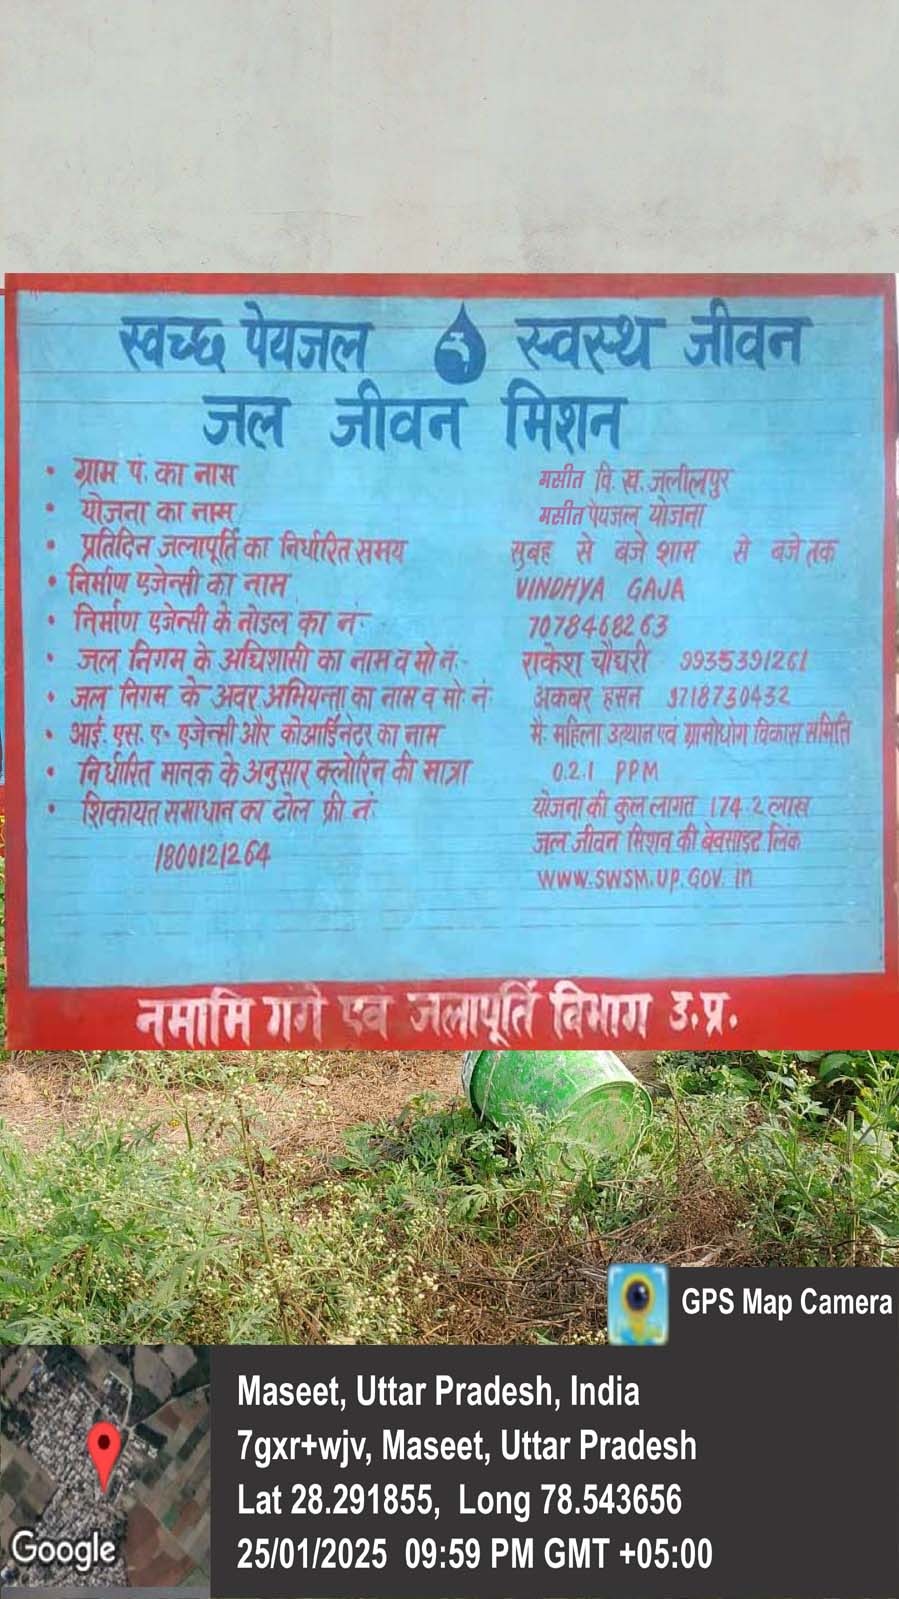 स्वच्छ पेयजल स्वस्थ जीवन
जल जीवन मिशन
• ग्राम पं. का नाम मसीत वि. ख. जलीलपुर
• योजना का नाम मसीत पेयजल योजना
• प्रतिदिन जलापूर्ति का निर्धारित समय सुबह से बजे शाम से बजे तक
• निर्माण एजेन्सी का नाम VINDHYA GAJA
• निर्माण एजेन्सी के नोडल का नं- 7078468263
• जल निगम के अधिशासी का नाम व मो नं- राकेश चौधरी 9935391261
• जल निगम के अवर अभियन्ता का नाम व मो. नं- अकबर हसन 9718730432
• आई. एस. ए. एजेन्सी और कोआर्डिनेटर का नाम मै. महिला उत्थान एवं ग्रामोधोग विकास समिति
• निर्धारित मानक के अनुसार क्लोरिन की मात्रा 0.2.1 PPM
• शिकायत समाधान का टोल फ्री नं. योजना की कुल लागत 174.2 लाख
1800121264 जल जीवन मिशन की बेवसाइट लिंक
WWW.SWSM.UP.GOV.in
नमामि गंगे एवं जलापूर्ति विभाग उ.प्र.
GPS Map Camera
Maseet, Uttar Pradesh, India
7gxr+wjv, Maseet, Uttar Pradesh
Lat 28.291855, Long 78.543656
25/01/2025 09:59 PM GMT +05:00
Google